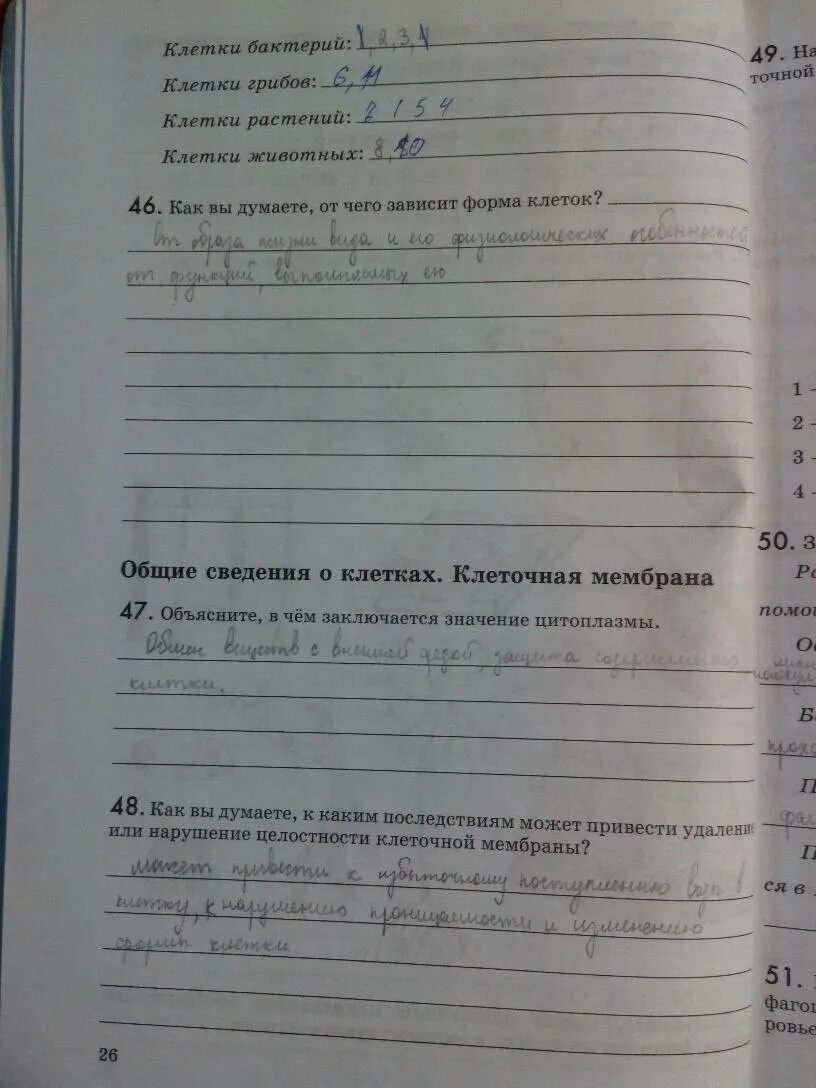 Клетки бактерий: 1, 2, 3,
Клетки грибов: 6, 11
Клетки растений: 2 1 5 4
Клетки животных: 8, 10
46. Как вы думаете, от чего зависит форма клеток?
От образа жизни вида и его физиологических особенностей
от функций, выполняемых ею
Общие сведения о клетках. Клеточная мембрана
47. Объясните, в чём заключается значение цитоплазмы.
Обмен веществ с внешней средой, защита содержимого
клетки.
48. Как вы думаете, к каким последствиям может привести удалени
или нарушение целостности клеточной мембраны?
может привести к избыточному поступлению воды в
клетку, к нарушению проницаемости и изменению
формы клетки
26
49. На
точной
1 -
2 -
3 -
4 -
50. З
Ра
помо
Ос
Б
прохо
П
фа
П
ся в
51.
фагоц
ровье